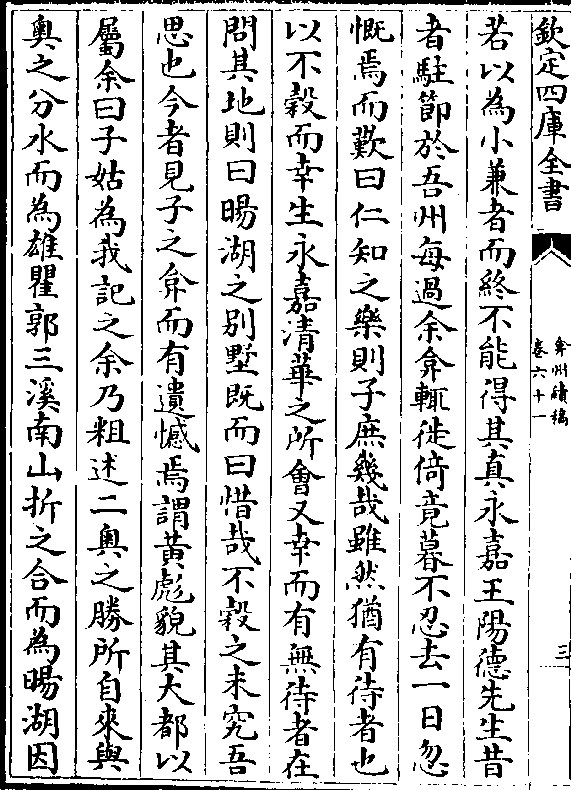 欽定四庫全書
弇州續稿
卷六十一
三
若以為小兼者而終不能得其真永嘉王陽德先生昔
者駐節於吾州每過余弇輒徙倚竟暮不忍去一日忽
慨焉而歎曰仁知之樂則子庶幾哉雖然猶有待者也
以不榖而幸生永嘉清華之所會又幸而有無待者在
問其地則曰暘湖之别墅既而曰惜哉不榖之未究吾
思也今者見子之弇而有遺憾焉謂黄彪貌其大都以
屬余曰子姑為我記之余乃粗述二奥之勝所自來與
奥之分水而為雄瞿郭三溪南山折之合而為暘湖因